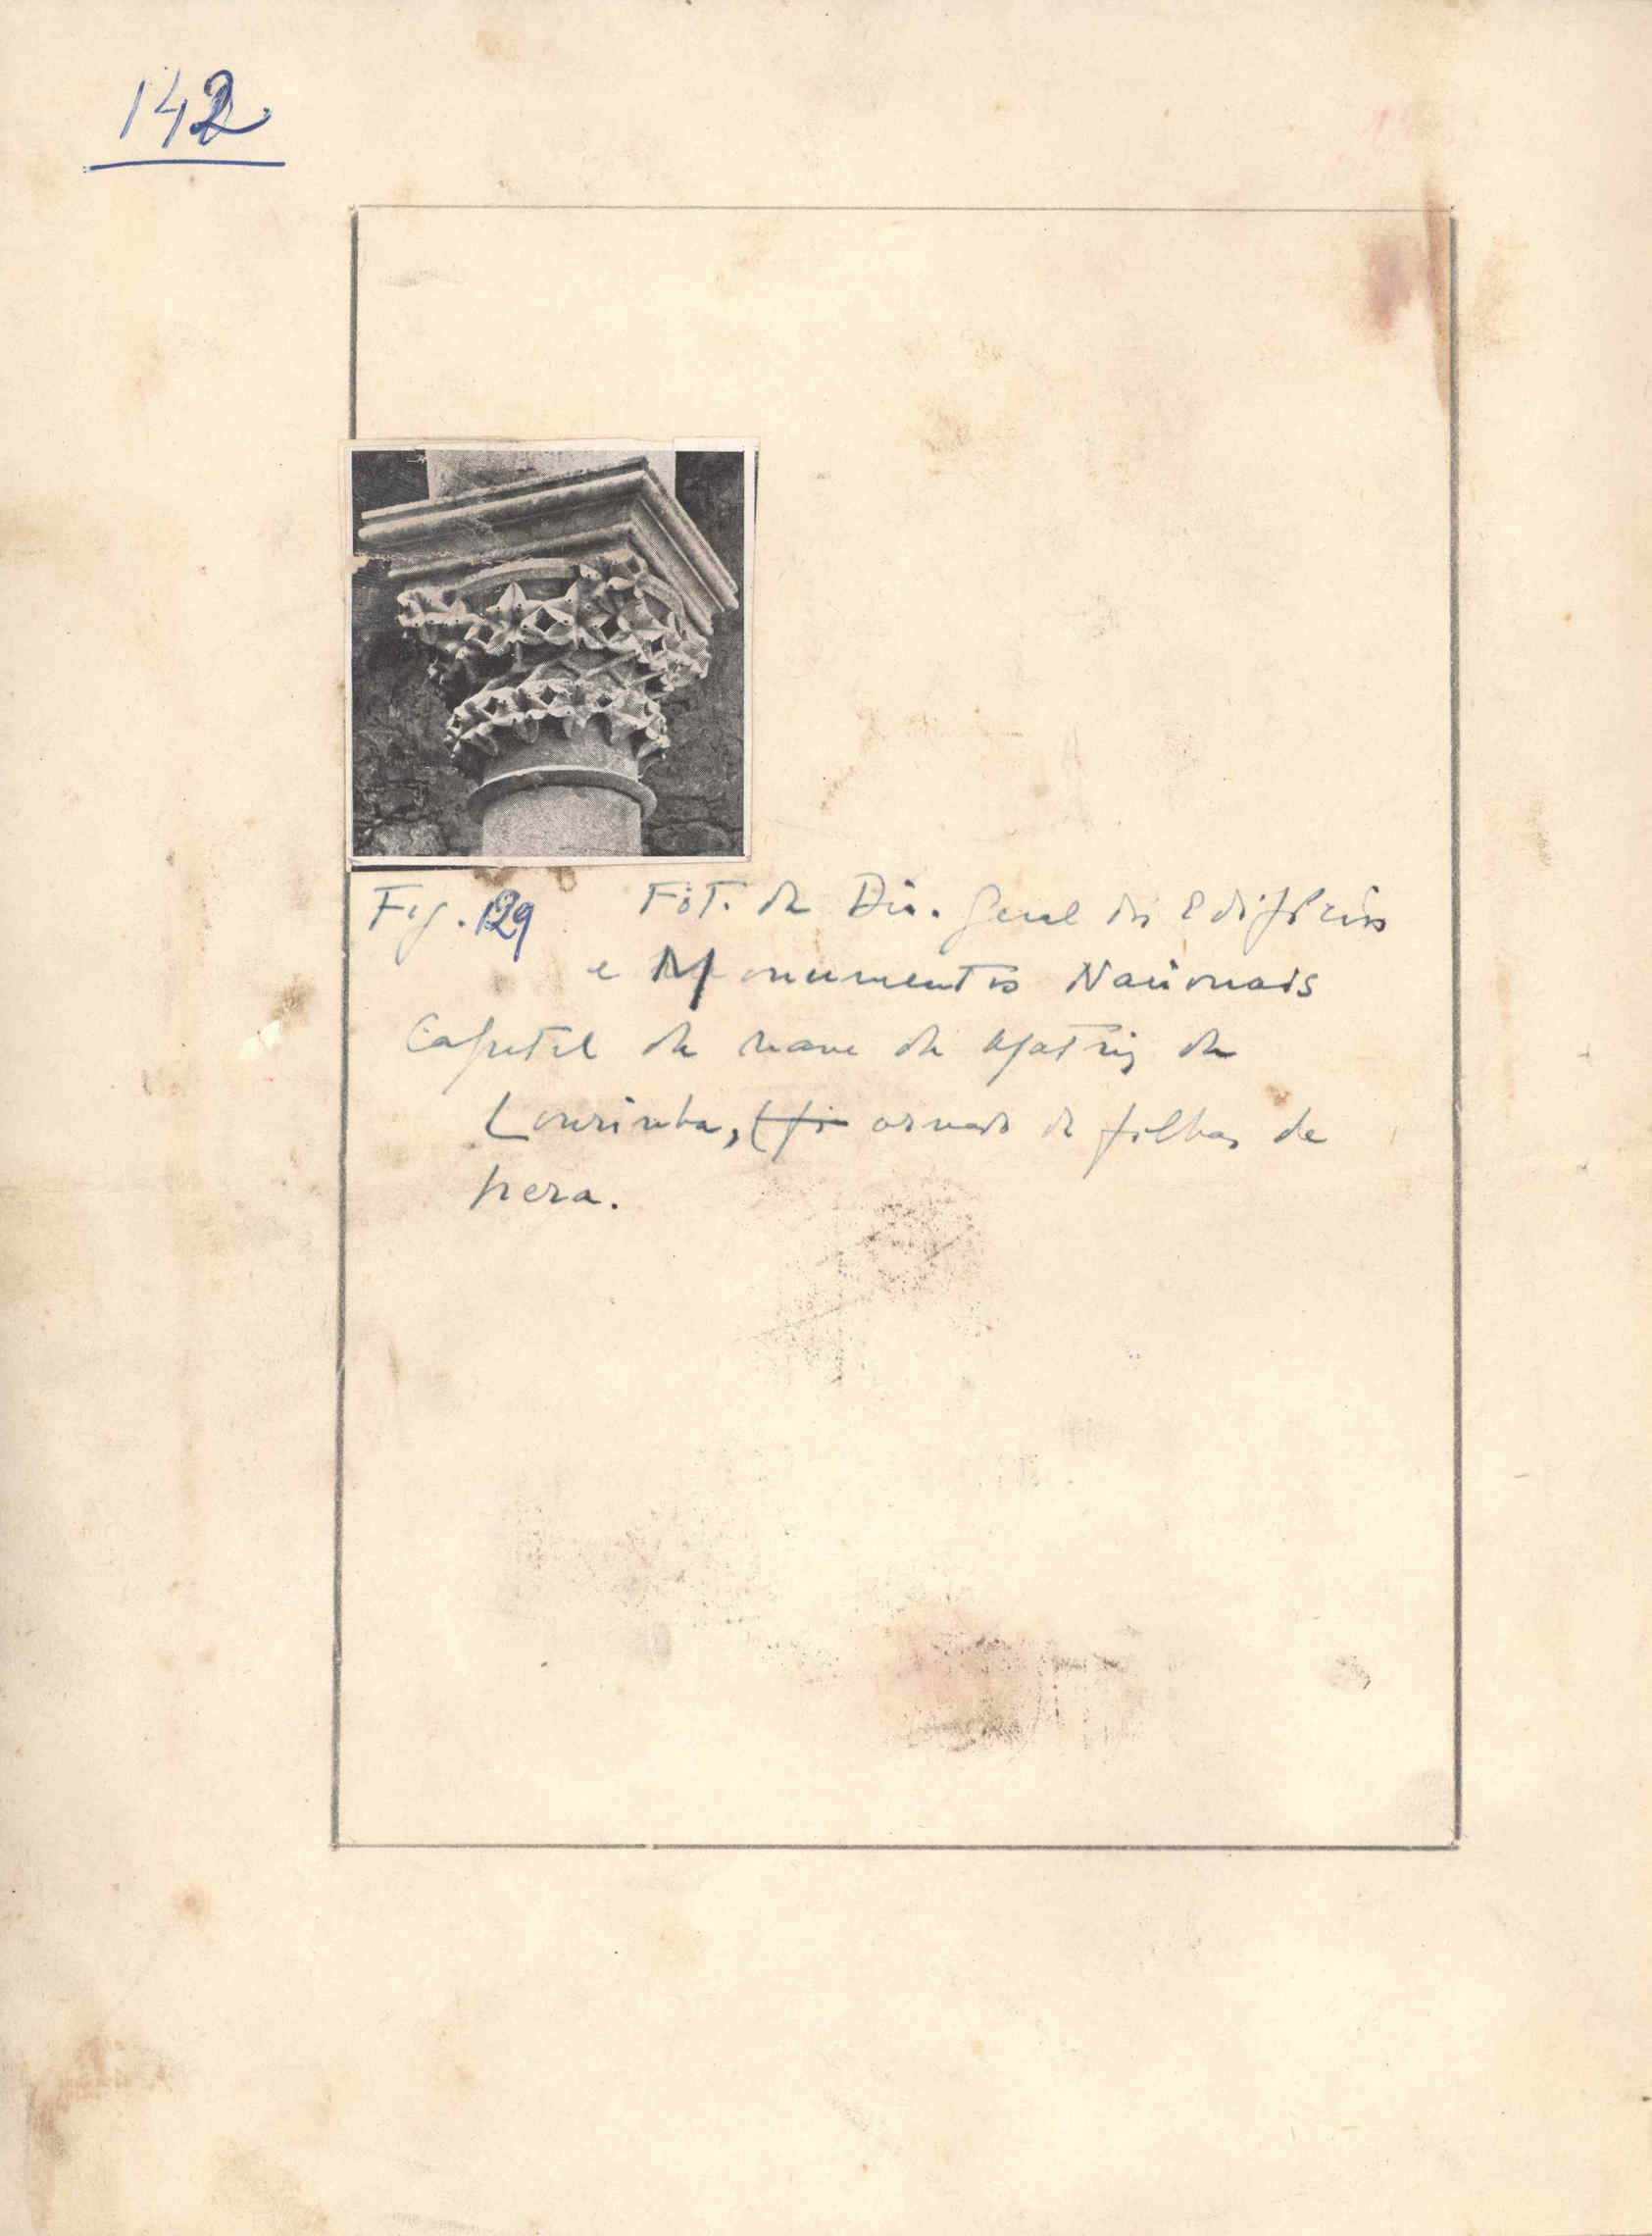 142
Fig. 129 Fot. da Dir. Geral dos Edifícios
e Monumentos Nacionais
Capitel da nave da Matriz da
Lourinha, ornado de folhas de
hera.